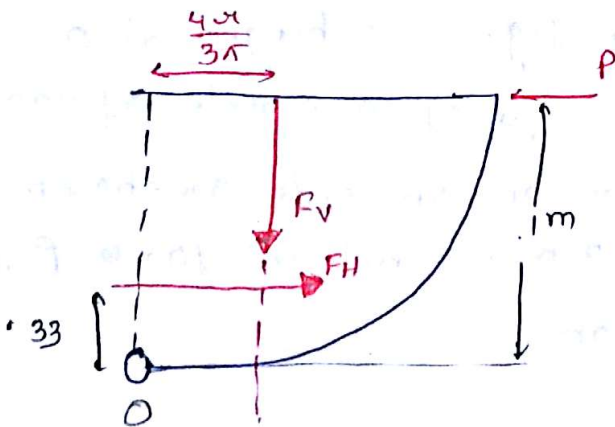 4r
3π
P
Fv
1m
FH
.33
O